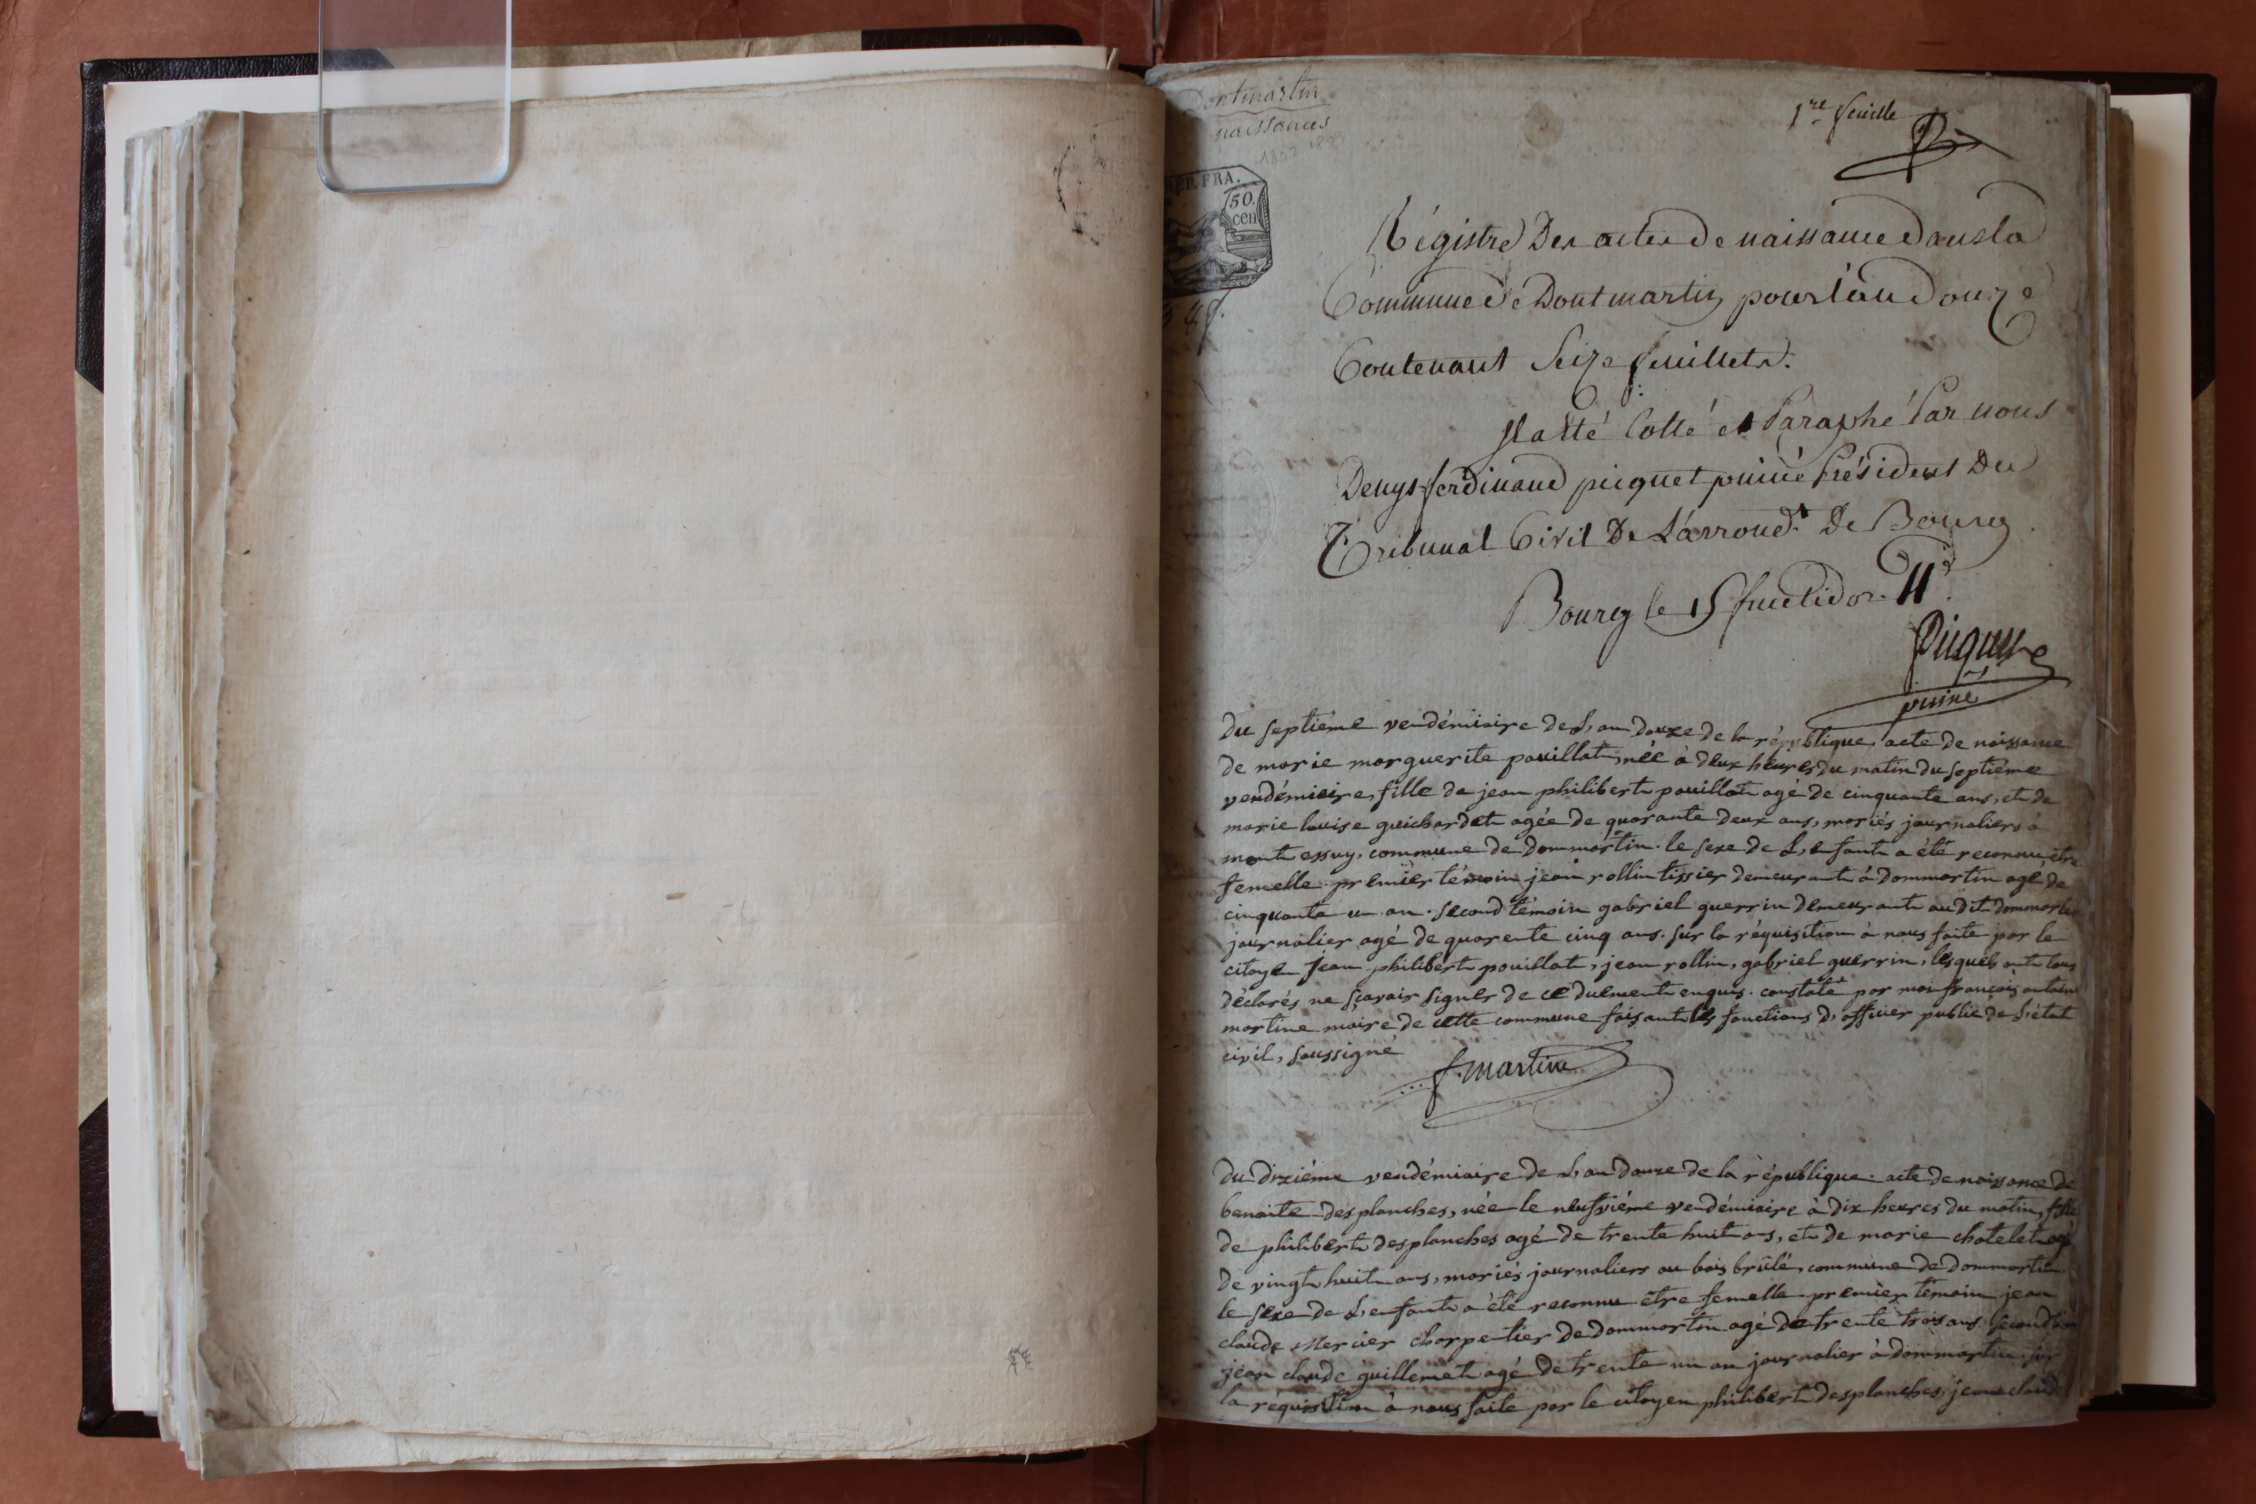 Dontmartin
naissances
1re feuille
REP. FRA.
50.
cen
Régistre Des actes de naissance dans la
Commune de Dontmartin pour l'an Douze
Contenant Seize feuillets.
Il a été Cotté et Paraphé Par nous
Denys ferdinand picquet puiné Président Du
Tribunal Civil De L'arrond.t De Bourg
Bourg le 15 fructidor 11
Picquet
puiné
Du septième vendémiaire de L,an Douze de la république, acte de naissance
de marie marguerite pouillat, née à deux heures du matin du septième
vendémiaire, fille de jean philibert pouillat agé de cinquante ans, et de
marie louise guichardet agée de quarante deux ans, mariés journaliers à
mont essuy, commune de dommartin. le sexe de L,enfant a été reconnu être
femelle. premier témoin jean rollin tissier demeurant à dommartin agé de
cinquante un an. second témoin gabriel guerrin demeurant audit dommartin
journalier agé de quarente cinq ans. sur la réquisition à nous faite par le
citoyen jean philibert pouillat, jean rollin, gabriel guerrin, lesquels ont tous
déclarés ne sçavoir signer de ce duement enquis. constaté par moi françois antoine
martine maire de cette commune faisant les fonctions d,officier public de L,état
civil, soussigné
f. martine
du dixième vendémiaire de L,an douze de la république. acte de naissance de
benoite desplanches, née le neufvième vendémiaire à dix heures du matin, fille
de philibert desplanches agé de trente huit ans, et de marie chatelet agé
de vingt huit ans, mariés journaliers au bois brûlé, commune de dommartin
le sexe de L,enfant a été reconnu être femelle premier témoin jean
claude Mercier charpentier de dommartin agé de trente trois ans second
jean claude guillemet agé de trente un an journalier à dommartin. sur
la réquisition à nous faite par le citoyen philibert desplanches, jean claude